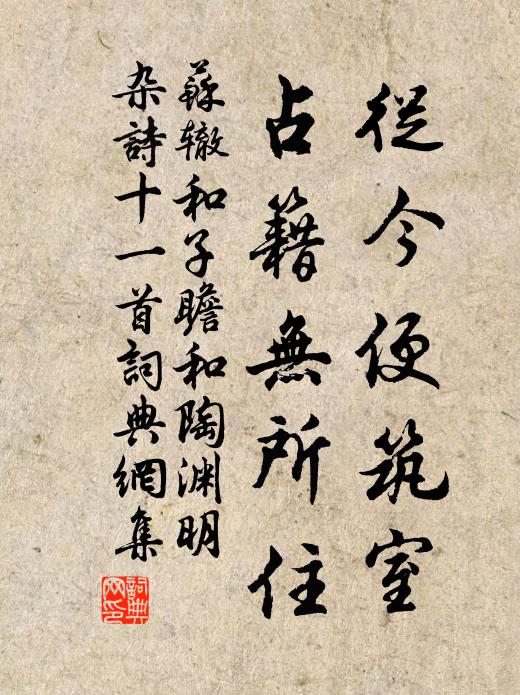 從今便筑室
占籍無所住
蘇辙和子瞻和陶渊明
杂詩十一首詞典網集
詞典網印